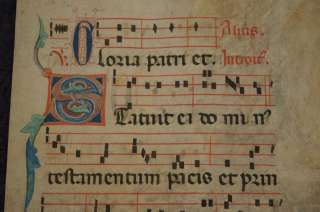 Alius
℣. Gloria patri et. Introit̾
Statuit ei do mi nꝰ
testamentum pacis et prin